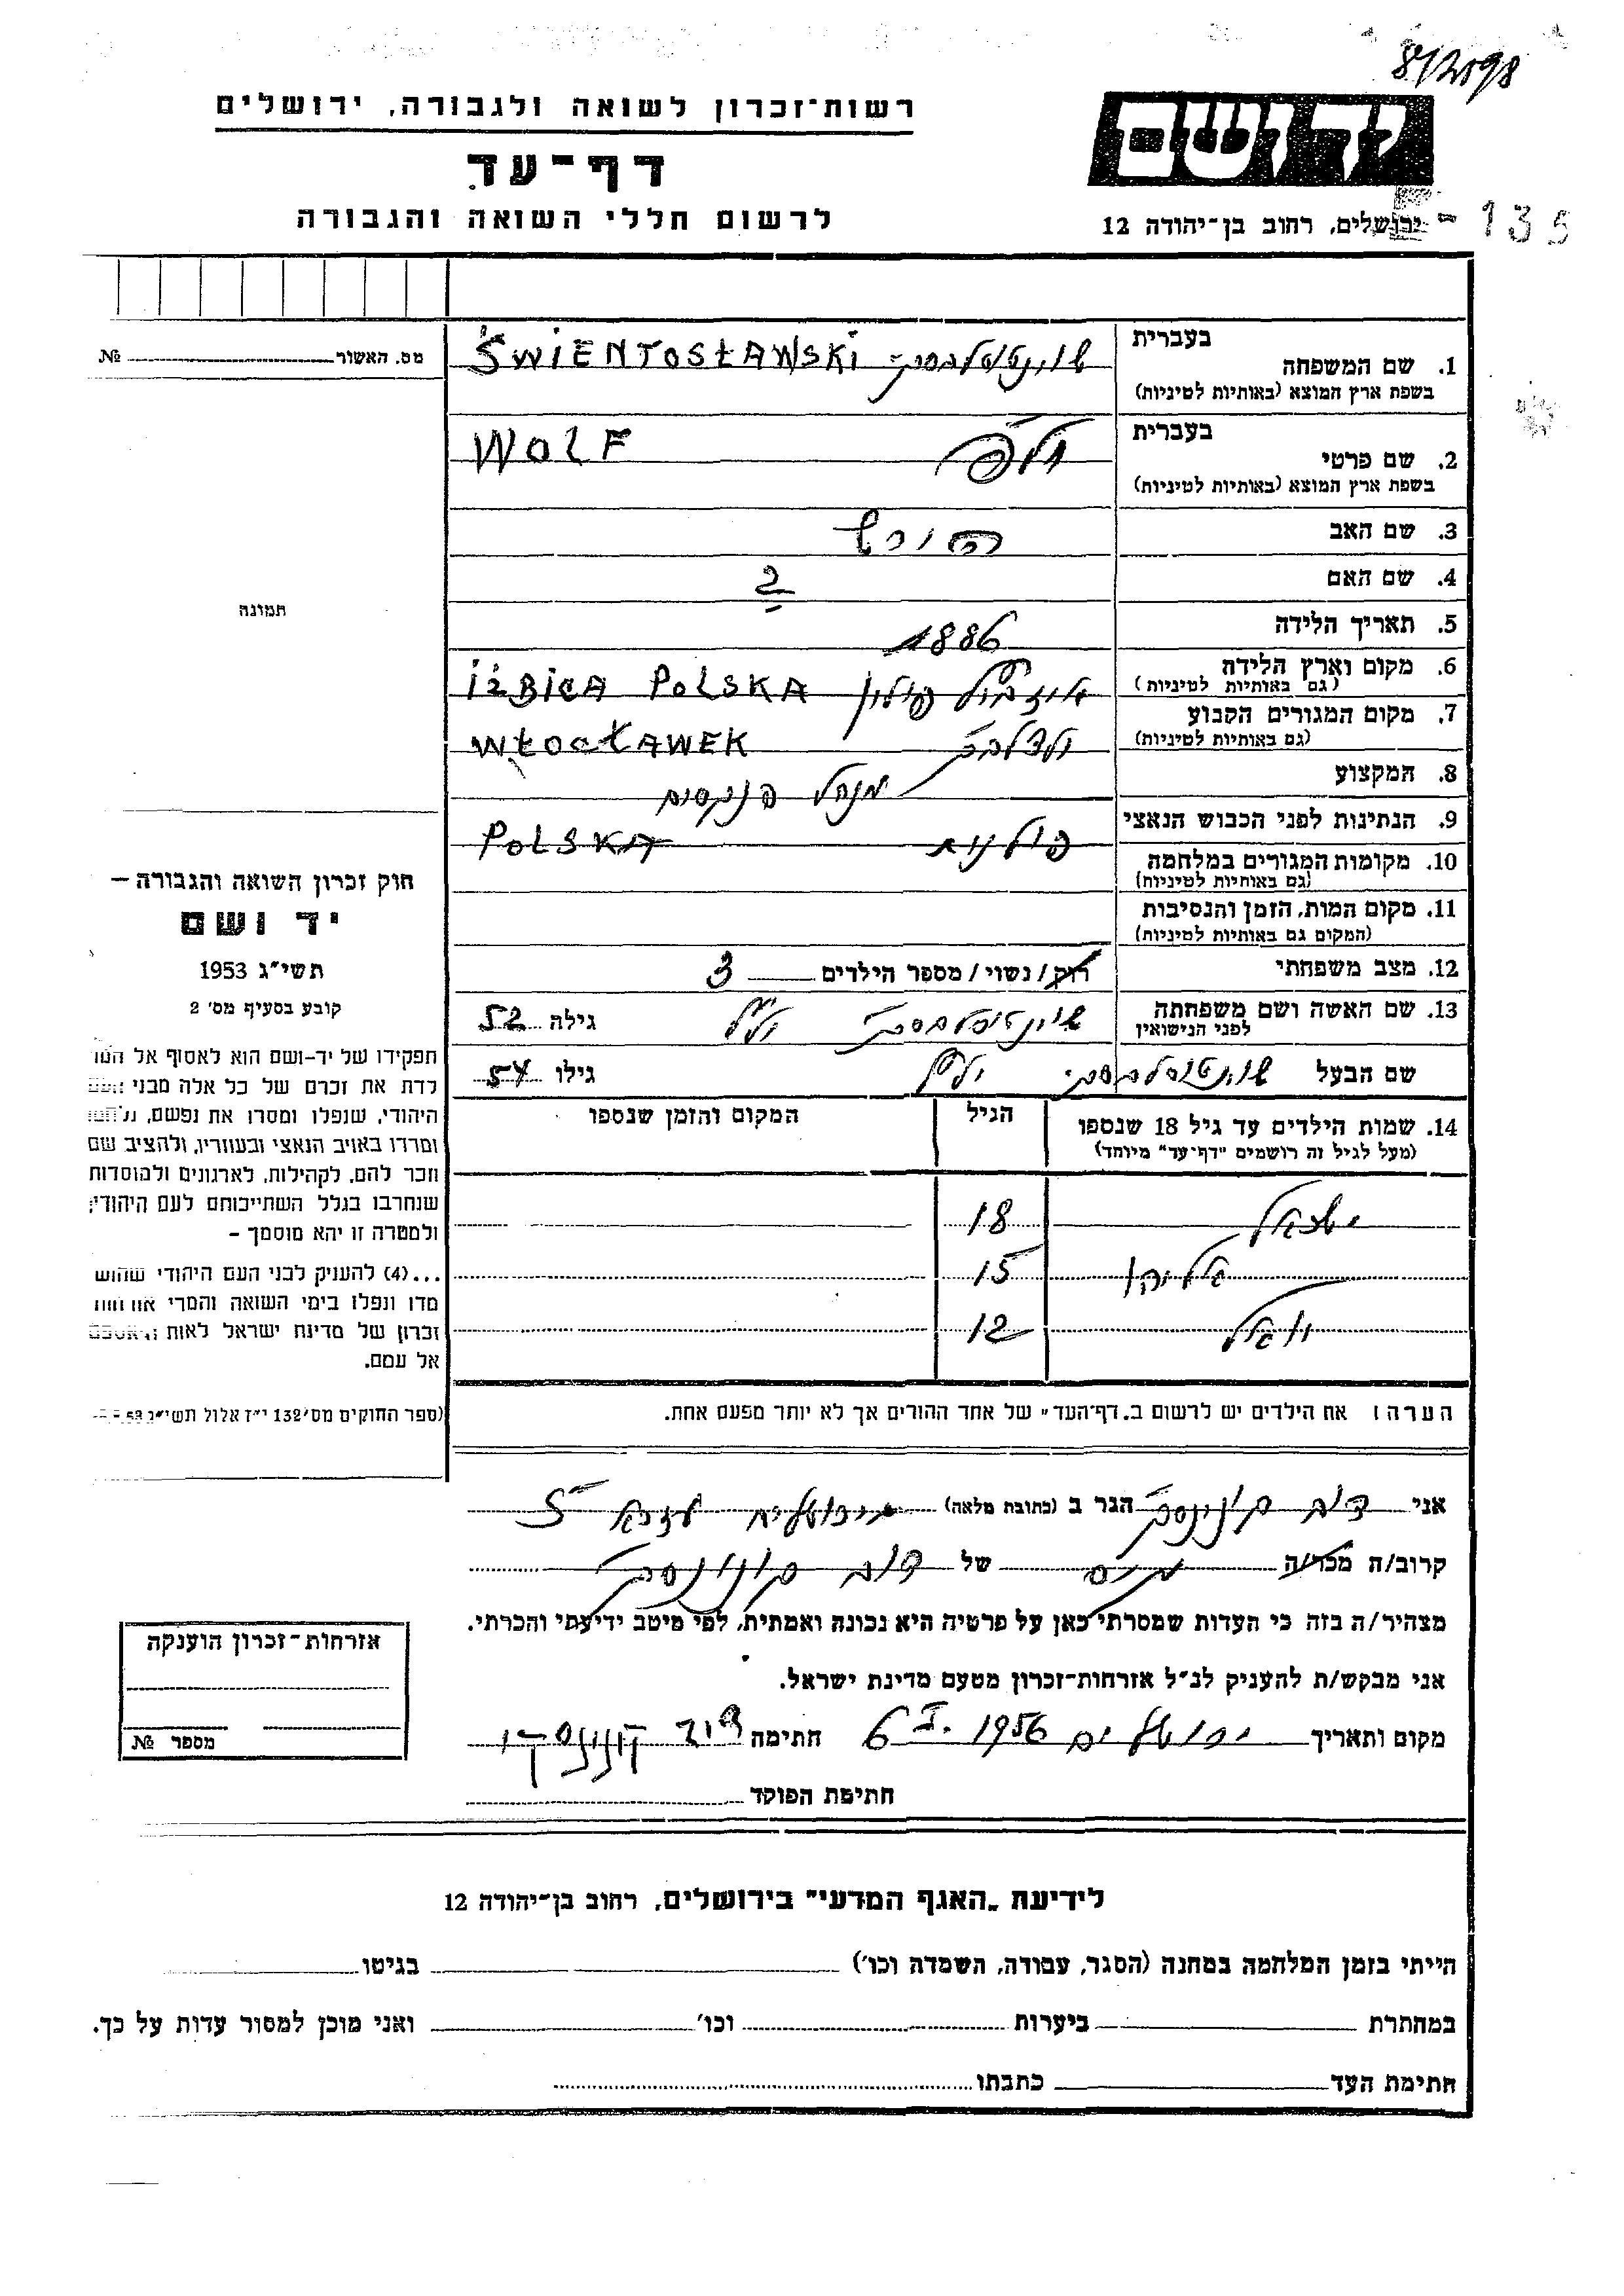 8/2098
רשות־זכרון לשואה ולגבורה, ירושלים
דף־עד
לרשום חללי השואה והגבורה
ידושם
ירושלים, רחוב בן־יהודה 12
- 135
מס. האשור №
בעברית
1. שם המשפחה
בשפת ארץ המוצא (באותיות לטיניות)
שוינטוסלבסקי ŚWIENTOSŁAWSKI
בעברית
2. שם פרטי
בשפת ארץ המוצא (באותיות לטיניות)
WOLF
3. שם האב הירש
4. שם האם ?
תמונה
5. תאריך הלידה 1886
6. מקום וארץ הלידה
(גם באותיות לטיניות)
פולין IŻBICA POLSKA
7. מקום המגורים הקבוע
(גם באותיות לטיניות)
WŁOCŁAWEK
8. המקצוע מנהל פנקסים
9. הנתינות לפני הכבוש הנאצי פולנית POLSKA
10. מקומות המגורים במלחמה
(גם באותיות לטיניות)
11. מקום המות, הזמן והנסיבות
(המקום גם באותיות לטיניות)
12. מצב משפחתי רוק/ נשוי/ מספר הילדים 3
13. שם האשה ושם משפחתה
לפני הנישואין
שוינטוסלבסקי גילה 52
שם הבעל שוינטוסלבסקי גילו 54
14. שמות הילדים עד גיל 18 שנספו
(מעל לגיל זה רושמים "דף־עד" מיוחד)
הגיל
המקום והזמן שנספו
ישראל 18
אליהו 15
12
הערה: את הילדים יש לרשום ב„דף־העד" של אחד ההורים אך לא יותר מפעם אחת.
חוק זכרון השואה והגבורה –
יד ושם
תשי"ג 1953
קובע בסעיף מס' 2
תפקידו של יד-ושם הוא לאסוף אל
לדת את זכרם של כל אלה מבני
היהודי, שנפלו ומסרו את נפשם,
ומרדו באויב הנאצי ובעוזריו, ולהציב שם
וזכר להם, לקהילות, לארגונים ולמוסדות
שנחרבו בגלל השתייכותם לעם היהודי;
ולמטרה זו יהא מוסמך –
...(4) להעניק לבני העם היהודי
מדו ונפלו בימי השואה והמרי
זכרון של מדינת ישראל לאות
אל עמם.
(ספר החוקים מס' 132 י"ז אלול תשי"ג
אני דוב קונינסקי הגר ב (כתובת מלאה) ירושלים 5
קרוב/ה מכר/ה של דוב קונינסקי
מצהיר/ה בזה כי העדות שמסרתי כאן על פרטיה היא נכונה ואמתית, לפי מיטב ידיעתי והכרתי.
אני מבקש/ת להעניק לנ"ל אזרחות־זכרון מטעם מדינת ישראל.
מקום ותאריך ירושלים 1956 חתימה דוב קונינסקי
חתימת הפוקד
אזרחות־זכרון הוענקה
מספר №
לידיעת „האגף המדעי" בירושלים, רחוב בן־יהודה 12
הייתי בזמן המלחמה במחנה (הסגר, עבודה, השמדה וכו') בגיטו
במחתרת ביערות וכו' ואני מוכן למסור עדות על כך.
חתימת העד כתבתו